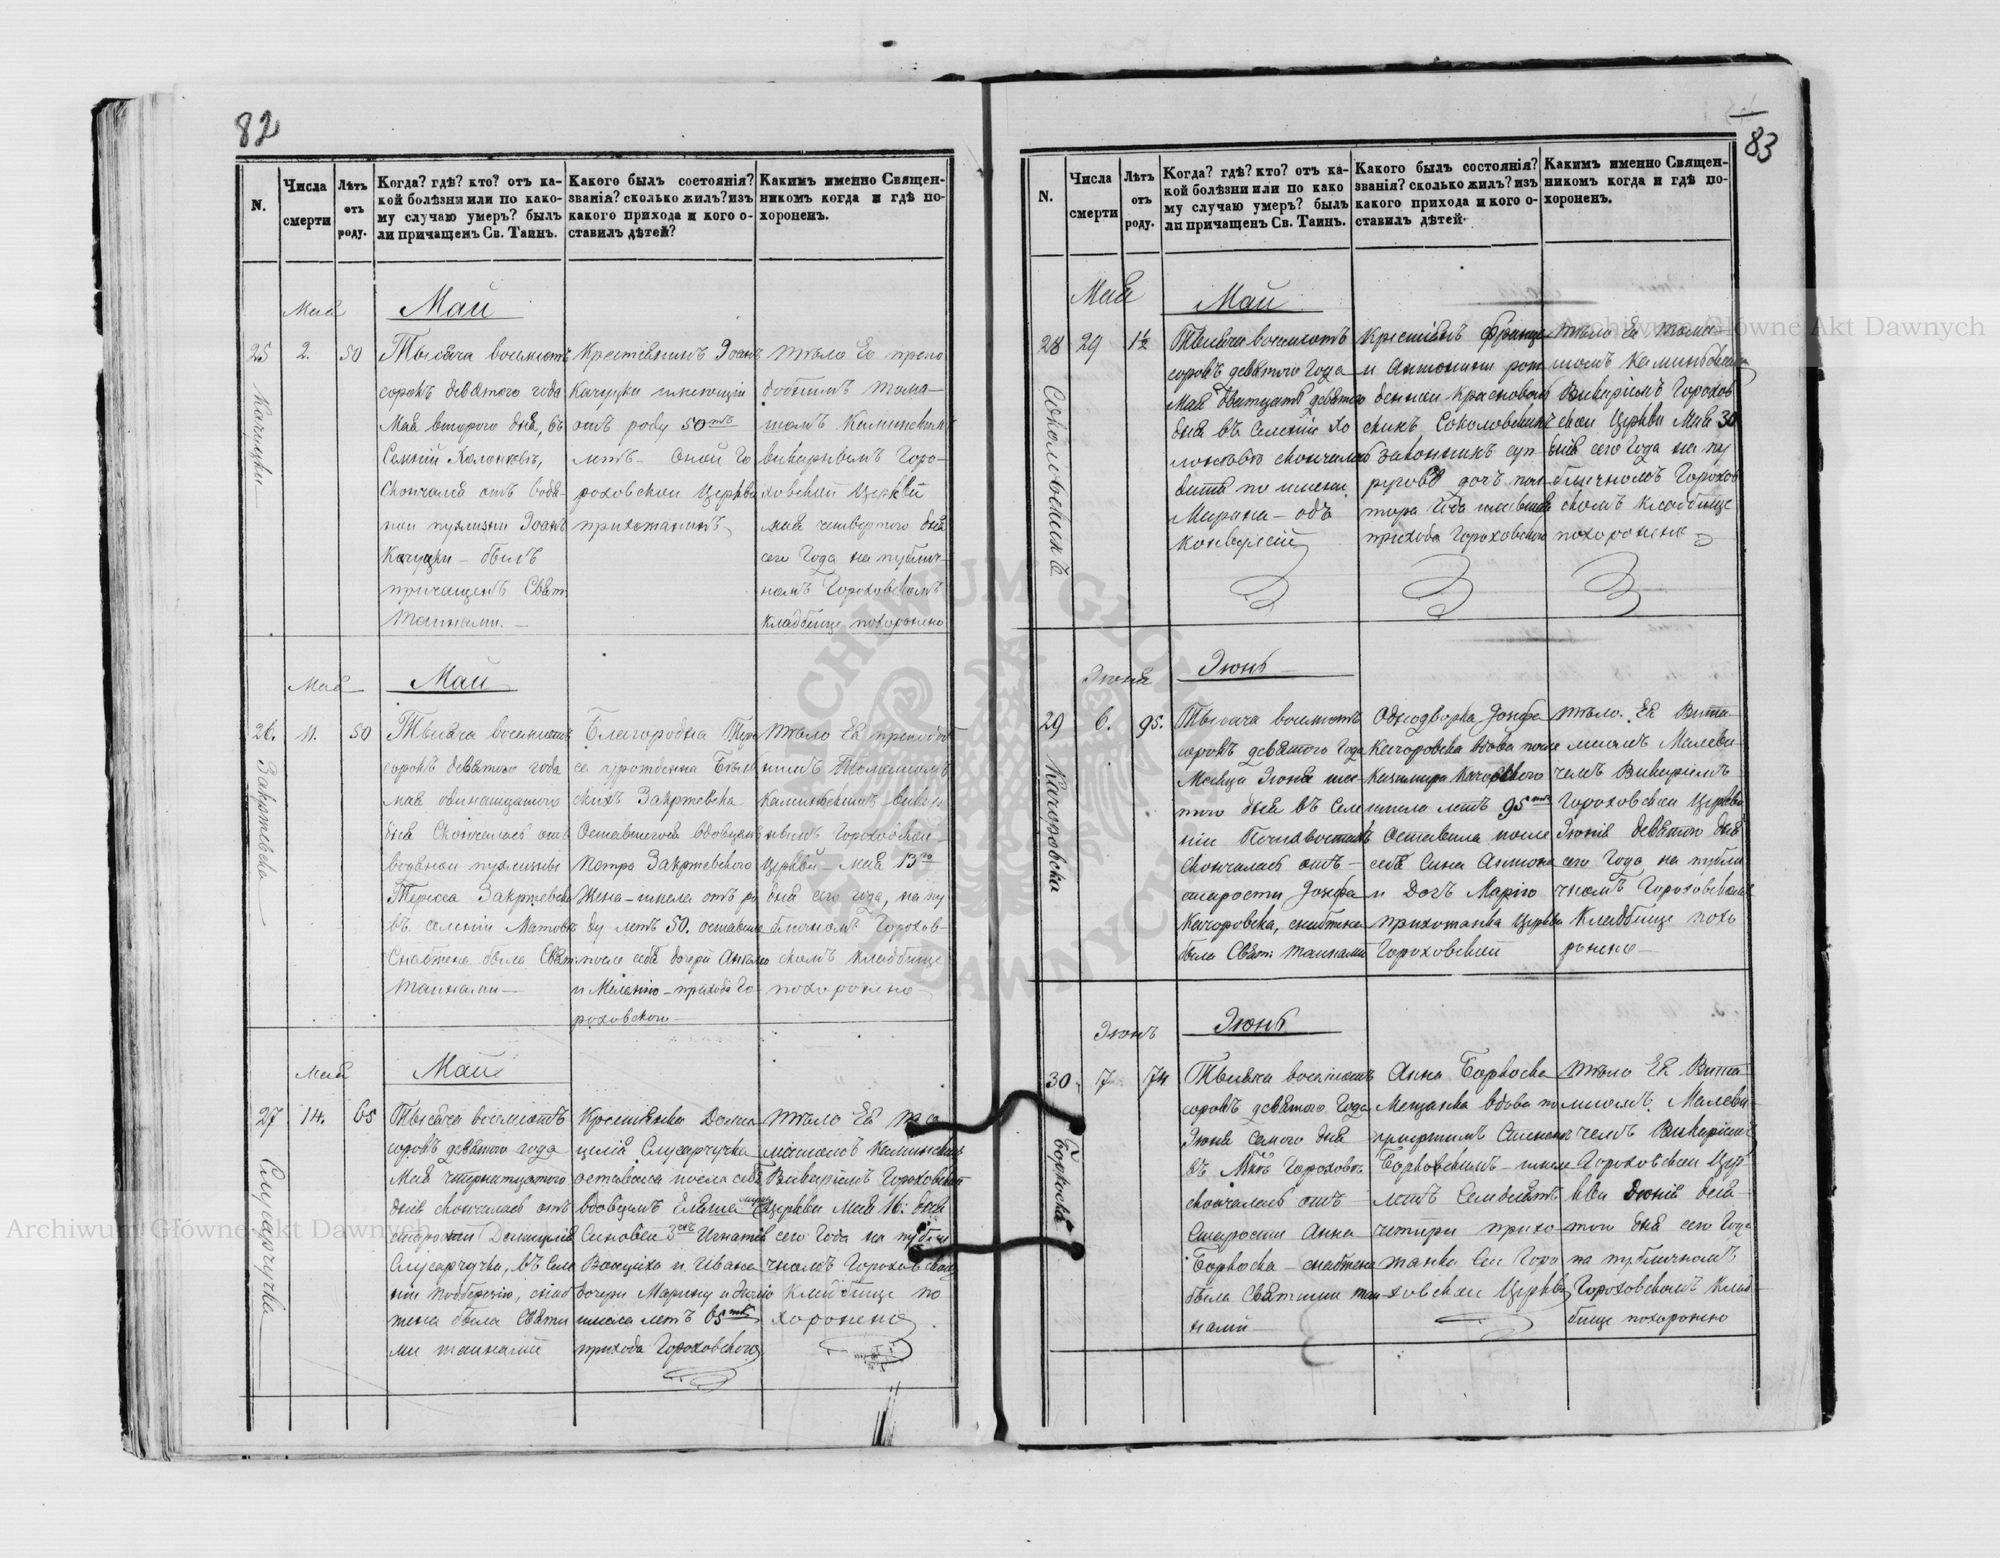 82
N.
Числа смерти
Лѣтъ отъ роду.
Когда? гдѣ? кто? отъ ка-
кой болѣзни или по како-
му случаю умеръ? былъ
ли причащенъ Св. Таинъ.
Какого былъ состоянія?
званія? сколько жилъ? изъ
какого прихода и кого о-
ставилъ дѣтей?
Какимъ именно Священ-
никомъ когда и гдѣ по-
хороненъ.
Мая
Май
25
2.
50
Качуцки
Тысяча восемсотъ
сорокъ девятого года
Мая второго дня, въ
Скончался отъ водя-
ной пухлизни Іоанъ
Качуцки – былъ
причащенъ Свят:
Тайнами. –
Крестянинъ Іоанъ
Качуцки имеющій
отъ роду 50тъ
летъ – Оной Го
роховской Церкви
прихожанинъ
тѣло Его препо
добнымъ Тома-
шомъ Каминскимъ
викарыемъ Горо-
ховской Церкви
мая четвертого дня
сего Года на публич-
номъ Гороховскомъ
кладбище похоронено
Мая
Май
26.
11.
50
Закржевска
Тысяча восемсотъ
сорокъ девятого года
мая одинатцатого
дня Скончалась отъ
водяной пухлизны
Тереса Закржевска
въ селеніи
Снабжена была Свят:
тайнами –
Благородна Тере
са урожденна
скихъ Закржевска
Оставшегося вдовцомъ
Петра Закржевского
Жена – имела отъ ро
ду летъ 50. оставила
после себя дочери
и Меланію – прихода Го
роховского –
тѣло Ея преподоб
нымъ Томашомъ
Каминскимъ – вика
ріемъ Гороховской
Церкви – Мая 13го
дня сего года, на пу
бличномъ Горохов-
скомъ кладбище
похоронено
Мая
Май
27
14.
65
Слусарчучка
Тысяча восемсотъ
сорокъ девятого года
Мая четернатцатого
дня скончалась отъ
старости Домицеля
Слусарчучка, въ Селе
ніи Подберезю, снаб
жена была Святы
ми тайнами
Крестянка Доми
целя Слусарчучка
оставила после себя
вдовцомъ
Синовей 3хъ Игнатія
Войцеха и Ивана
дочери Марину и
имела летъ 65ть
прихода Гороховского
тѣло Ея То
машомъ Каминскимъ
Викаріемъ Гороховской
Церкви Мая 16: дня
сего Года на публи
чномъ Гороховском
Кладбище по
хоронено
83
N.
Числа смерти
Лѣтъ отъ роду.
Когда? гдѣ? кто? отъ ка-
кой болѣзни или по како
му случаю умеръ? былъ
ли причащенъ Св. Таинъ.
Какого былъ состоянія?
званія? сколько жилъ? изъ
какого прихода и кого о-
ставилъ дѣтей·
Какимъ именно Священ-
никомъ когда и гдѣ по-
хороненъ.
Мая
Май
28
29
1½
Соколовскихъ
Тысяча восемсотъ
сорокъ девятого Года
Мая дватцать девятого
дня въ Селеніи Хо
Марина – одъ
Конвулсій
Крестянъ Франца
и Антонины
скихъ Соколовскихъ
Законнихъ суп-
руговъ дочъ пол-
тора Года имевшая
прихода Гороховского
тѣло Ея Тома-
шомъ Каминскимъ
Викаріемъ Горохов
ской Церкви Мая 30
дня сего Года на пу
бличномъ Горохов
скомъ кладбище
похоронено
Іюня
Іюнь
29
6.
95.
Качоровска
Тысяча восемсотъ
сорокъ девятого Года
Месяца Іюня шес-
того дня въ Селе
ніи
скончалась отъ –
старости Іозефа
Качоровска, снабжена
была Свят: тайнами
Однодворка Іозефа
Качоровска вдова после
Казимира Качоровского
имела летъ 95ть
Оставила после
себя Сина Антона
и Дочъ Марію
прихожанка Церкви
Гороховской
тѣло. Ея Вита-
лисомъ Малеви-
чемъ Викаріемъ
Гороховской Церкви
Іюня девятого дня
сего Года на публи
чномъ Гороховскомъ
Кладбище похо
ронено –
Іюнъ
Іюнь
30
7
74
Борковска
Тысяча восемсотъ
сорокъ девятого Года
Іюня семого дня
въ Мкѣ Гороховѣ
скончалась отъ –
Старости Анна
Борковска – снабжена
была Святыми тай-
нами –
Анна Борковска
Мещанка вдова по
Борковскимъ – имела
летъ Семдесятъ
четыри прихо
жанка Сей Горо
ховской Церкви
тѣло Ея Вита
лисомъ. Малеви-
чемъ Викаріемъ
Гороховской Цер-
кви Іюня девя-
того дня сего Года
на публичномъ
Гороховскомъ Клад-
бище похоронено
Archiwum Główne Akt Dawnych
Archiwum Główne Akt Dawnych
ARCHIWUM GŁÓWNE AKT DAWNYCH